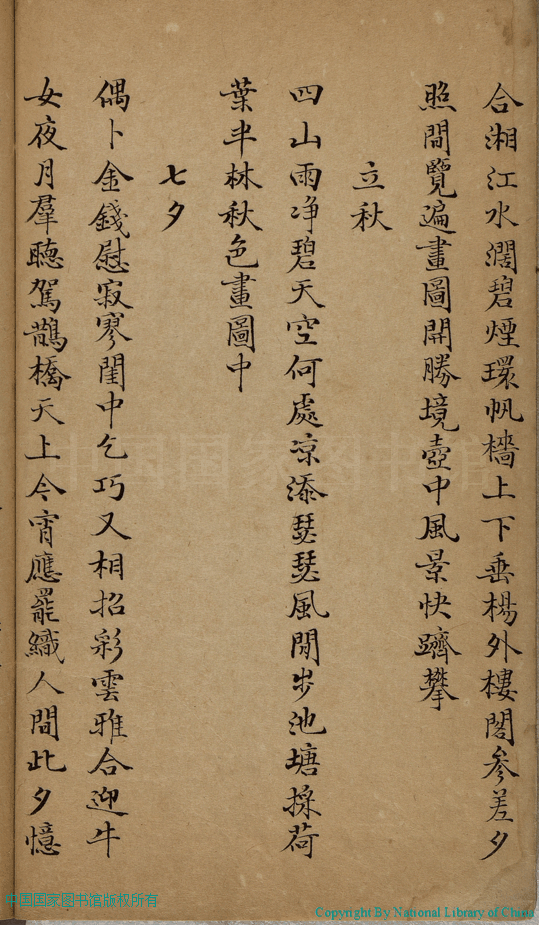 合湘江水濶碧煙環帆樯上下垂楊外樓閣参差夕
照間覽遍畫圖開勝境壺中風景快躋攀
立秋
四山雨净碧天空何處凉添瑟瑟風閒步池塘採荷
葉半林秋色畫圖中
七夕
偶卜金錢慰寂寥閨中乞巧又相招彩雲雅合迎牛
女夜月羣聽駕鵲橋天上今宵應罷織人間此夕憶
中国国家图书馆
中国国家图书馆版权所有
Copyright By National Library of China